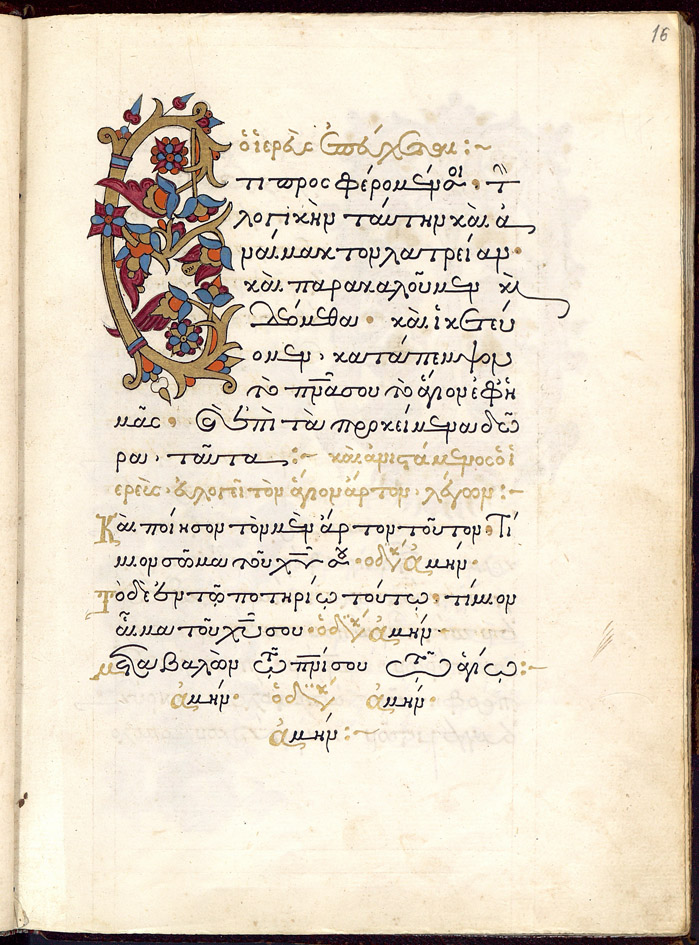 16
ὁ ἱερεὺς ἐπεύχεται :~
Ἔτι προσφέρομέν σοι · τὴν
λογικὴν ταύτην καὶ ἀ
ναίμακτον λατρείαν ·
καὶ παρακαλοῦμεν καὶ
δεόμεθα · καὶ ἱκετεύ
ομεν · κατάπεμψον
τὸ πνᾶ σου τὸ ἅγιον ἐφ' ἡ
μᾶς · καὶ ἐπὶ τὰ προκείμενα δῶ
ρα · ταῦτα :~ καὶ ἀνιστάμενος ὁ ἱ
ερεὺς · εὐλογεῖ τὸν ἅγιον ἄρτον · λέγων :~
Καὶ ποίησον τὸν μὲν ἄρτον τοῦτον · Τί
μιον σῶμα τοῦ χυ σου · ὁ δι ἀμήν ·
Τὸ δὲ ἐν τῷ ποτηρίῳ τούτῳ · τίμιον
αἷμα τοῦ χυ σου · ὁ δι ἀμήν ·
μεταβαλὼν τῷ πνι σου τῷ ἁγίῳ :~
ἀμήν · ὁ δι ἀμήν ·
ἀμήν :~